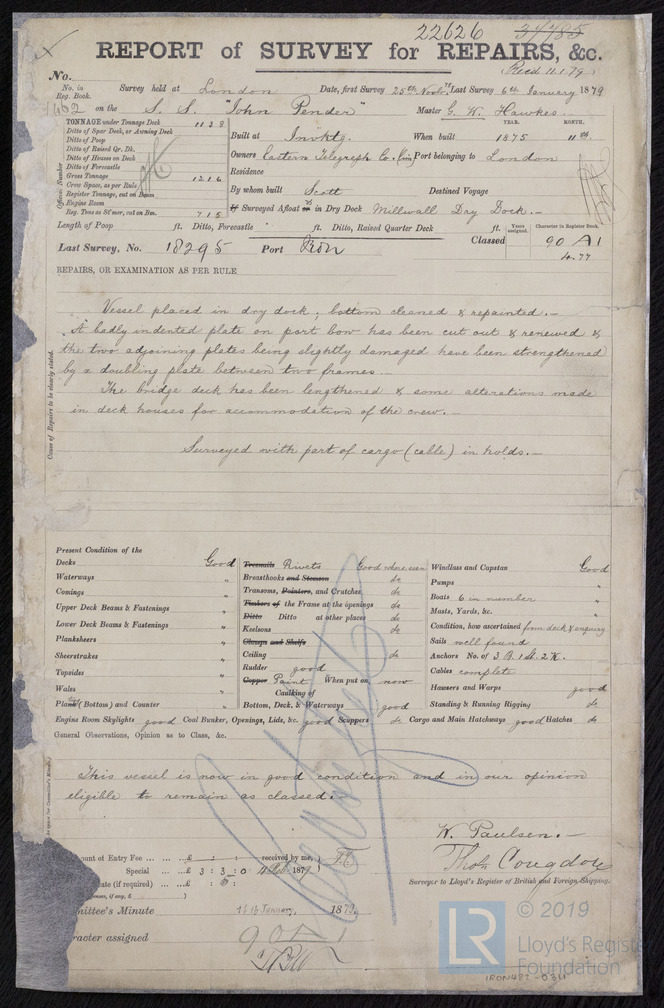 22626 34785
REPORT of SURVEY for REPAIRS, &c.
Recd 11.1.79
No.
No. in Reg. Book. Survey held at London Date, first Survey 25th Novbr 78 Last Survey 6th January 1879
462 on the S. S. "John Pender" Master G. W. Hawkes
TONNAGE under Tonnage Deck 1128
Ditto of Spar Deck, or Awning Deck
Ditto of Poop
Ditto of Raised Qr. Dk.
Ditto of Houses on Deck
Ditto of Forecastle
Gross Tonnage 1216
Crew Space, as per Rule
Register Tonnage, cut on Beam
Engine Room
Reg. Tons as St'mer, cut on Bm. 715
YEAR. MONTH.
Built at When built 1875 11th
Owners Eastern Telegraph Co. (Lim) Port belonging to London
Residence
By whom built Scott Destined Voyage
If Surveyed Afloat or in Dry Dock Millwall Dry Dock.
Length of Poop ft. Ditto, Forecastle ft. Ditto, Raised Quarter Deck ft.
Years assigned. Character in Register Book.
Last Survey, No. 18295 Port Classed 90 A1
4.77
REPAIRS, OR EXAMINATION AS PER RULE
Cause of Repairs to be clearly stated.
Vessel placed in dry dock; bottom cleaned & repainted.
A badly indented plate on port bow has been cut out & renewed &
the two adjoining plates being slightly damaged have been strengthened
by a doubling plate between two frames.
The bridge deck has been lengthened & some alterations made
in deck houses for accommodation of the crew.
Surveyed with part of cargo (cable) in holds.
Present Condition of the
Decks Good
Waterways "
Comings "
Upper Deck Beams & Fastenings "
Lower Deck Beams & Fastenings "
Planksheers "
Sheerstrakes "
Topsides "
Wales "
Plating (Bottom) and Counter "
Treenails Rivets Good where seen
Breasthooks and Stemson do
Transoms, Pointers, and Crutches do
Timbers of the Frame at the openings do
Ditto Ditto at other places do
Keelsons do
Clamps and Shelfs
Ceiling do
Rudder good
Copper Paint When put on, now
Caulking of
Bottom, Deck, & Waterways good
Windlass and Capstan Good
Pumps "
Boats 6 in number
Masts, Yards, &c. "
Condition, how ascertained from deck & enquiry
Sails well found
Anchors No. of 3 B. 1 St. 2 K.
Cables complete
Hawsers and Warps good
Standing & Running Rigging do
Engine Room Skylights good Coal Bunker, Openings, Lids, &c. good Scuppers do Cargo and Main Hatchways good Hatches do
General Observations, Opinion as to Class, &c.
This vessel is now in good condition and in our opinion
eligible to remain as classed.
W. Paulsen.
Thos Congdon
Surveyor to Lloyd's Register of British and Foreign Shipping.
ount of Entry Fee ... £ : : received by me,
Special ... £ 3 : 3 : 0 1879
ate (if required) ... £ : 0 :
mittee's Minute 14th January, 1879.
racter assigned 90 A 1
© 2019
LR
Lloyd's Register
Foundation
IRON482-0311